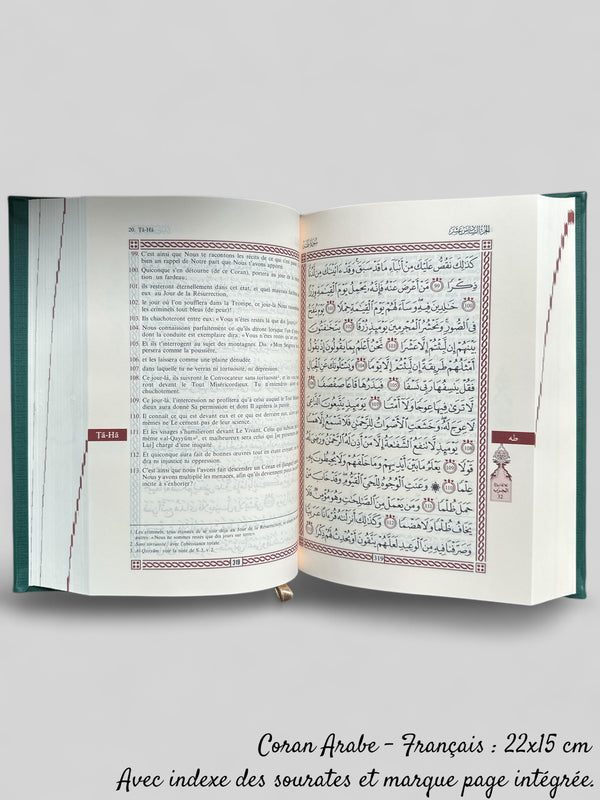 20. Tā-Hā
99. C'est ainsi que Nous te racontons les récits de ce qui s'est
bien un rappel de Notre part que Nous t'avons apporté.
100. Quiconque s'en détourne (de ce Coran), portera au jour de
un fardeau;
101. ils resteront éternellement dans cet état, et quel mauvais fardeau
eux au Jour de la Résurrection,
102. le jour où l'on soufflera dans la Trompe, ce jour-là Nous
les criminels tout bleus (de peur)!
103. Ils chuchoteront entre eux: «Vous n'êtes restés là que dix
104. Nous connaissons parfaitement ce qu'ils diront lorsque l'un
dont la conduite est exemplaire dira: «Vous n'êtes restés qu'un
105. Et ils t'interrogent au sujet des montagnes. Dis: «Mon Seigneur
persera comme la poussière,
106. et les laissera comme une plaine dénudée
107. dans laquelle tu ne verras ni tortuosité, ni dépression.
108. Ce jour-là, ils suivront le Convocateur sans tortuosité, et les
ront devant le Tout Miséricordieux. Tu n'entendras
chuchotement.
109. Ce jour-là, l'intercession ne profitera qu'à celui auquel le Tout
dieux aura donné Sa permission et dont Il agréera la parole.
110. Il connaît ce qui est devant eux et ce qui est derrière eux,
mêmes ne Le cernent pas de leur science.
111. Et les visages s'humilieront devant Le Vivant, Celui qui subsiste
même «al-Qayyûm», et malheureux sera celui qui [se présentera
Lui] chargé d'une iniquité.
112. Et quiconque aura fait de bonnes œuvres tout en étant croyant,
dra ni injustice ni oppression.
113. C'est ainsi que nous l'avons fait descendre un Coran en [langue]
Nous y avons multiplié les menaces, afin qu'ils deviennent
incite à s'exhorter?
1. Les criminels, tous étonnés de se voir déjà au Jour de la Résurrection,
autres: «Nous ne sommes restés que dix jours sur terre».
2. Sans tortuosité: avec l'obéissance totale.
3. Al Qayyûm: voir la note de S. 2, v. 2
Tā-Hā
319
الجزء السادس عشر
كَذَٰلِكَ نَقُصُّ عَلَيْكَ مِنْ أَنۢبَآءِ مَا قَدْ سَبَقَ وَقَدْ ءَاتَيْنَٰكَ مِن لَّدُنَّا
ذِكْرًا ٩٩ مَّنْ أَعْرَضَ عَنْهُ فَإِنَّهُۥ يَحْمِلُ يَوْمَ ٱلْقِيَٰمَةِ وِزْرًا
١٠٠ خَٰلِدِينَ فِيهِ وَسَآءَ لَهُمْ يَوْمَ ٱلْقِيَٰمَةِ حِمْلًا ١٠١ يَوْمَ يُنفَخُ
فِى ٱلصُّورِ وَنَحْشُرُ ٱلْمُجْرِمِينَ يَوْمَئِذٍ زُرْقًا ١٠٢ يَتَخَٰفَتُونَ
بَيْنَهُمْ إِن لَّبِثْتُمْ إِلَّا عَشْرًا ١٠٣ نَّحْنُ أَعْلَمُ بِمَا يَقُولُونَ إِذْ يَقُولُ
أَمْثَلُهُمْ طَرِيقَةً إِن لَّبِثْتُمْ إِلَّا يَوْمًا ١٠٤ وَيَسْـَٔلُونَكَ عَنِ ٱلْجِبَالِ
فَقُلْ يَنسِفُهَا رَبِّى نَسْفًا ١٠٥ فَيَذَرُهَا قَاعًا صَفْصَفًا ١٠٦
لَّا تَرَىٰ فِيهَا عِوَجًا وَلَآ أَمْتًا ١٠٧ يَوْمَئِذٍ يَتَّبِعُونَ ٱلدَّاعِىَ
لَا عِوَجَ لَهُۥ وَخَشَعَتِ ٱلْأَصْوَاتُ لِلرَّحْمَٰنِ فَلَا تَسْمَعُ إِلَّا هَمْسًا
١٠٨ يَوْمَئِذٍ لَّا تَنفَعُ ٱلشَّفَٰعَةُ إِلَّا مَنْ أَذِنَ لَهُ ٱلرَّحْمَٰنُ وَرَضِىَ لَهُۥ
قَوْلًا ١٠٩ يَعْلَمُ مَا بَيْنَ أَيْدِيهِمْ وَمَا خَلْفَهُمْ وَلَا يُحِيطُونَ بِهِۦ
عِلْمًا ١١٠ وَعَنَتِ ٱلْوُجُوهُ لِلْحَىِّ ٱلْقَيُّومِ وَقَدْ خَابَ مَنْ
حَمَلَ ظُلْمًا ١١١ وَمَن يَعْمَلْ مِنَ ٱلصَّٰلِحَٰتِ وَهُوَ مُؤْمِنٌ فَلَا
يَخَافُ ظُلْمًا وَلَا هَضْمًا ١١٢ وَكَذَٰلِكَ أَنزَلْنَٰهُ قُرْءَانًا عَرَبِيًّا
وَصَرَّفْنَا فِيهِ مِنَ ٱلْوَعِيدِ لَعَلَّهُمْ يَتَّقُونَ أَوْ يُحْدِثُ لَهُمْ ذِكْرًا
319
طه
الحزب
32
Coran Arabe - Français : 22x15 cm
Avec indexe des sourates et marque page intégrée.